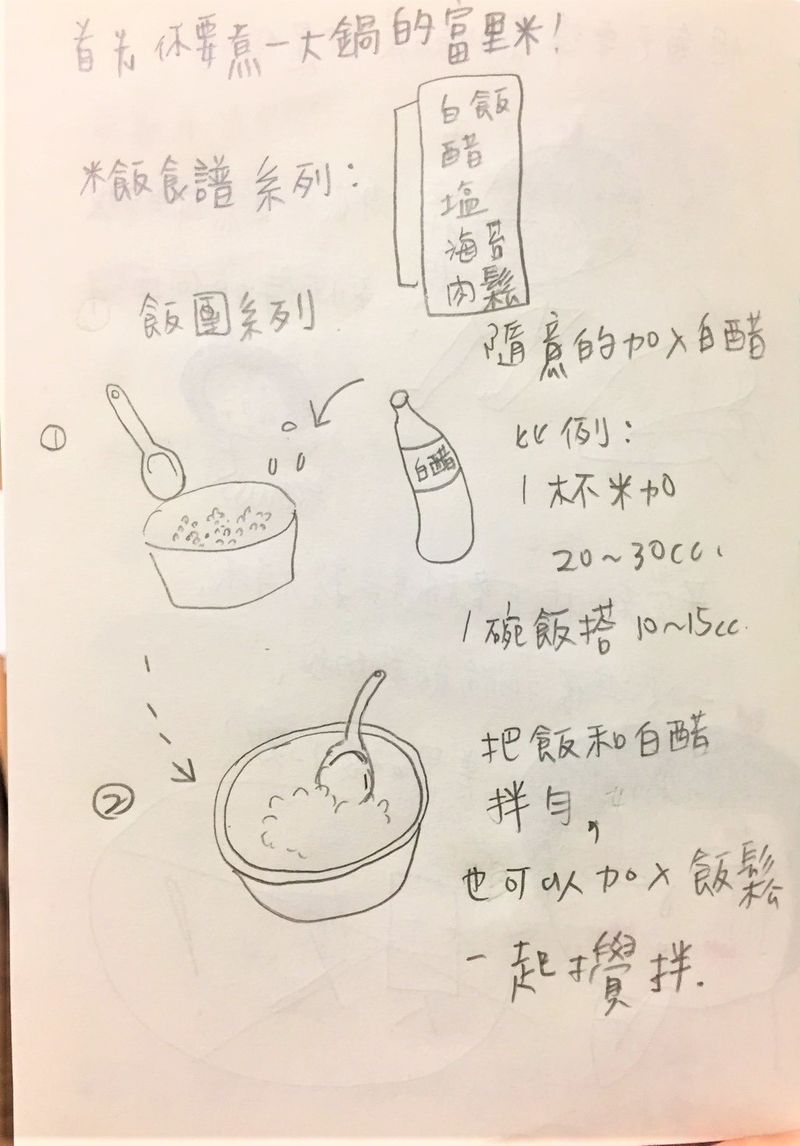 首先你要煮一大鍋的富里米!
白飯
醋
塩
海苔
肉鬆
米飯食譜系列:
飯團系列
隨意的加入白醋
①
白醋
比例:
1杯米加
20~30cc.
1碗飯搭10~15cc.
②
把飯和白醋
拌勻,
也可以加入飯鬆
一起攪拌.